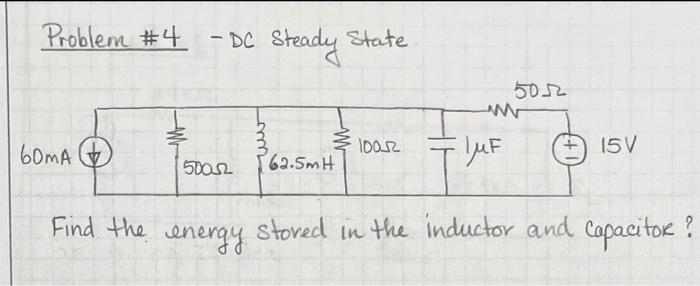 Problem #4 - DC Steady State
50Ω
60mA
500Ω
62.5mH
100Ω
1μF
+
-
15V
Find the energy stored in the inductor and capacitor?